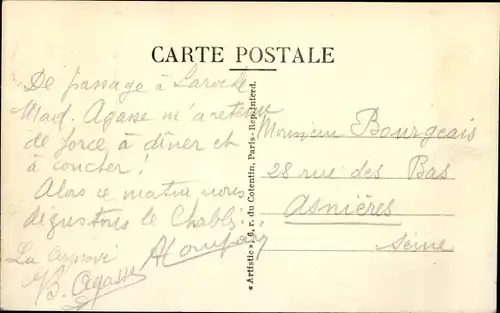 CARTE POSTALE
De passage à Laroche
Mad. Agasse m'a retenu
de force à dîner et
à coucher!
Alors ce matin nous
dégustons le Chablis
La
B. Agasse
« Artistic », 6, r. du Cotentin, Paris - Rep. interd.
Monsieur Bourgeais
28 rue des Bas
Asnières
Seine